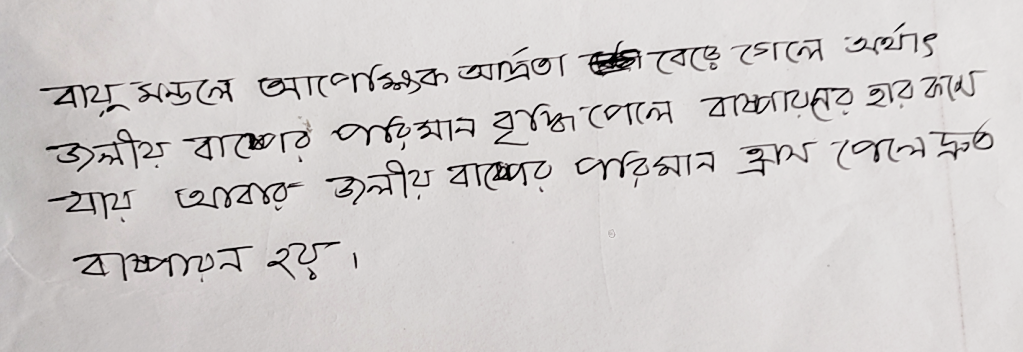 বায়ু মন্ডলে আপেক্ষিক আর্দ্রতা বেড়ে গেলে অর্থাৎ
জলীয় বাষ্পের পরিমান বৃদ্ধি পেলে বাষ্পায়নের হার কমে
যায় আবার জলীয় বাষ্পের পরিমান হ্রাস পেলে দ্রুত
বাষ্পায়ন হয়।